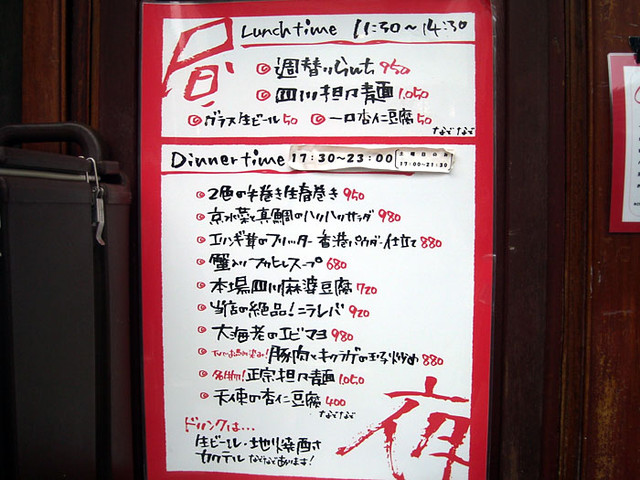 昼
Lunch time 11:30～14:30
◎週替りらんち 950
◎四川担々麺 1,050
◎グラス生ビール 50 ◎一口杏仁豆腐 50
などなど
Dinner time 17:30～23:00
17:00～21:30
◎2色の手巻き生春巻き 950
◎京水菜と真鯛のハリハリサラダ 980
◎エリンギ茸のフリッター 香港パウダー仕立て 880
◎蟹入りフカヒレスープ 680
◎本場四川麻婆豆腐 720
◎当店の絶品!ニラレバ 920
◎大海老のエビマヨ 980
◎豚肉とキクラゲの玉子炒め 880
◎名物!正宗担々麺 1,050
◎天使の杏仁豆腐 400
などなど
ドリンクは…
生ビール・地焼酎
カクテル などなどあります!
夜